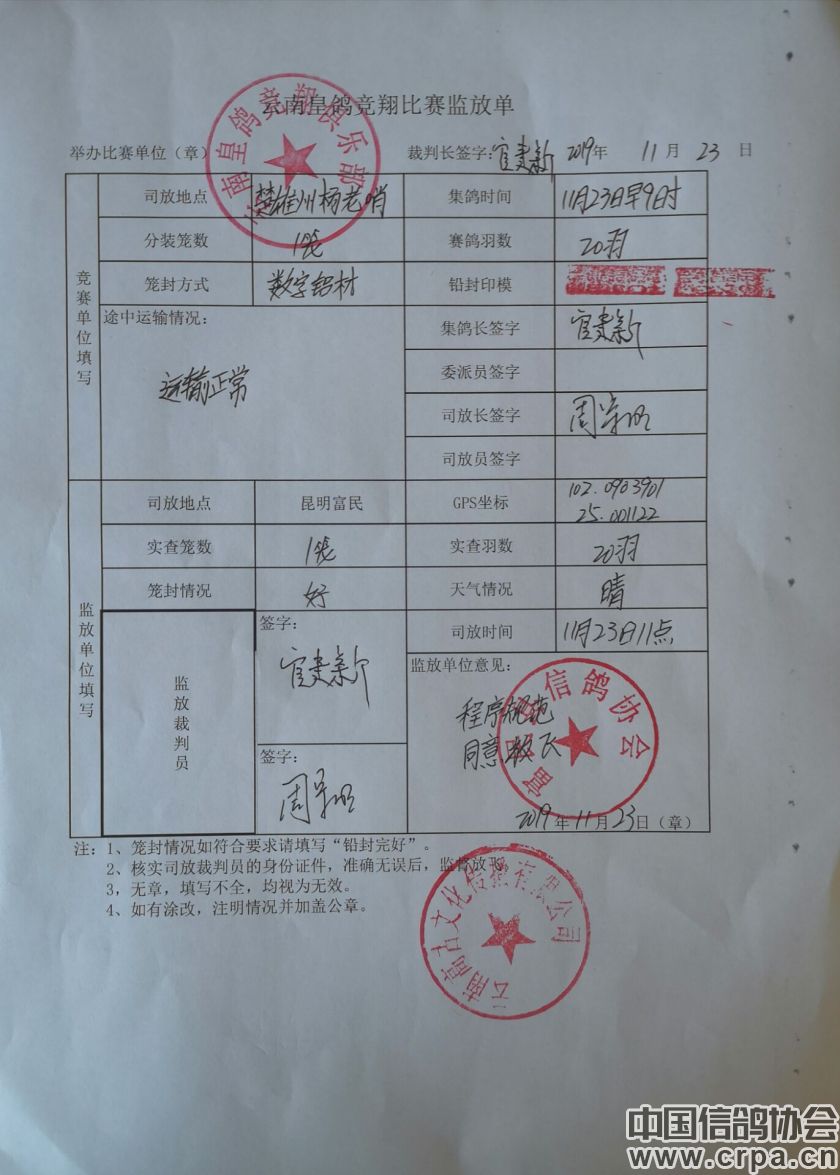 云南皇鸽竞翔比赛监放单
举办比赛单位（章） 裁判长签字: 官建新 2019年 11月 23日
南皇鸽竞翔俱乐部
竞赛单位填写
司放地点 楚雄州杨老哨 集鸽时间 11月23日早9时
分装笼数 1笼 赛鸽羽数 20羽
笼封方式 数字铅材 铅封印模
途中运输情况: 集鸽长签字 官建新
运输正常 委派员签字
司放长签字 周宗明
司放员签字
监放单位填写
司放地点 昆明富民 GPS坐标 102.0903901
25.001122
实查笼数 1笼 实查羽数 20羽
笼封情况 好 天气情况 晴
监放裁判员 签字: 官建新 司放时间 11月23日11点
监放单位意见:
程序规范
同意放飞
信鸽协会
签字: 周宗明
2019年11月23日（章）
注：1、笼封情况如符合要求请填写“铅封完好”。
2、核实司放裁判员的身份证件，准确无误后，监督放飞。
3，无章，填写不全，均视为无效。
4、如有涂改，注明情况并加盖公章。
云南高古文化传播有限公司
中国信鸽协会
www.crpa.cn